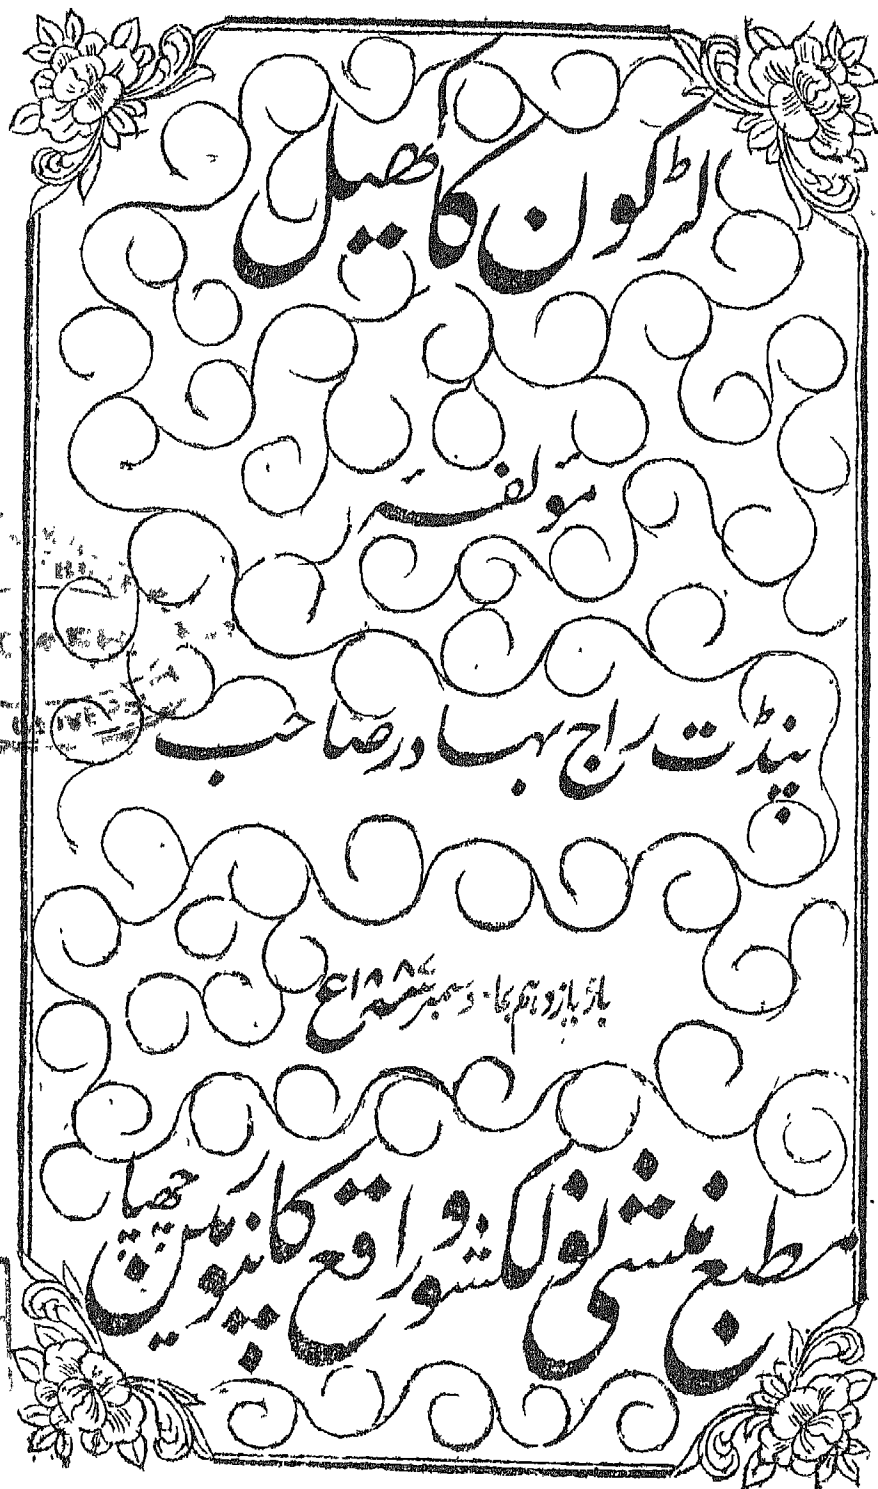 لڑکون کا کھیل
مؤلفۂ
پنڈت راج بہادر صاحب
بار یازدہم دسمبر
مطبع منشی نولکشور واقع کانپور مین چھپا